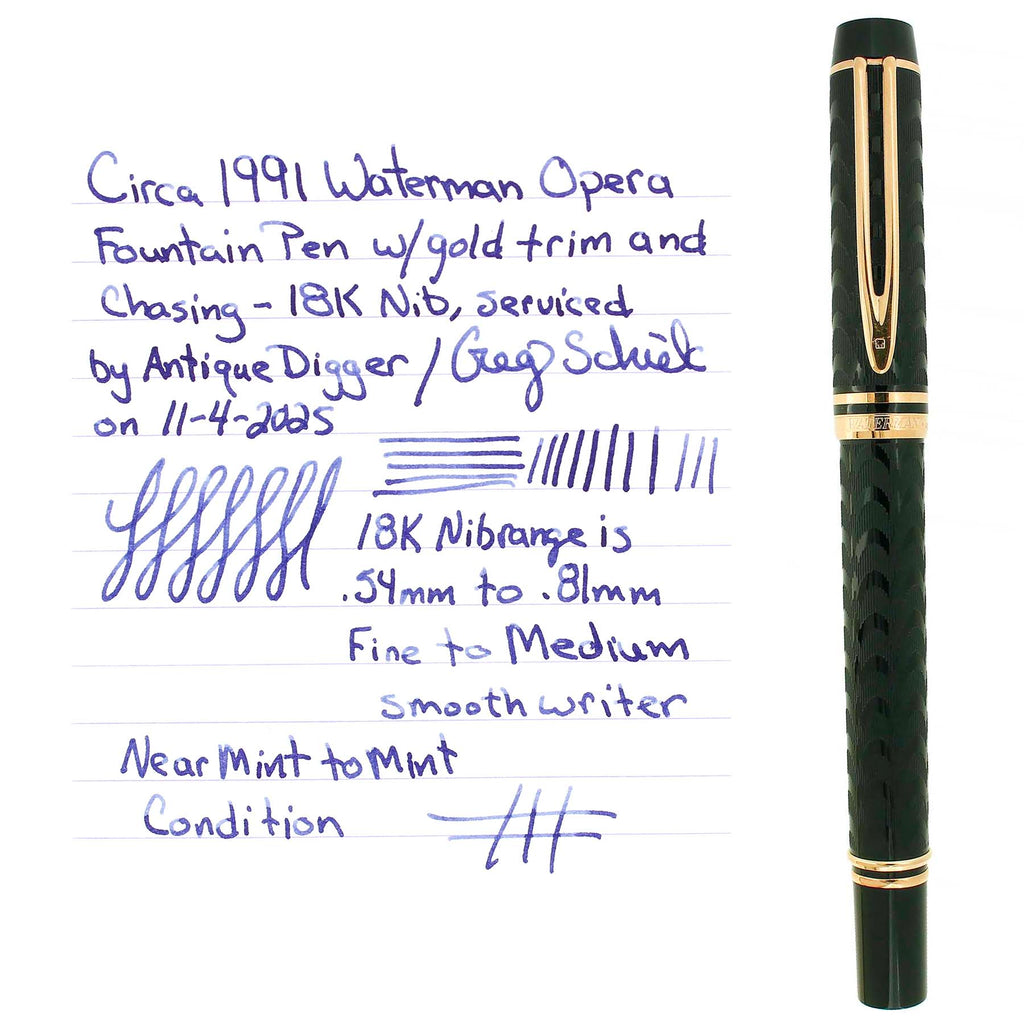 Circa 1991 Waterman Opera
Fountain Pen w/gold trim and
Chasing - 18K Nib, serviced
by Antique Digger / Greg
on 11-4-2025
18K Nib range is
.54mm to .81mm
Fine to Medium
smooth writer
Near Mint to Mint
Condition
WATERMAN